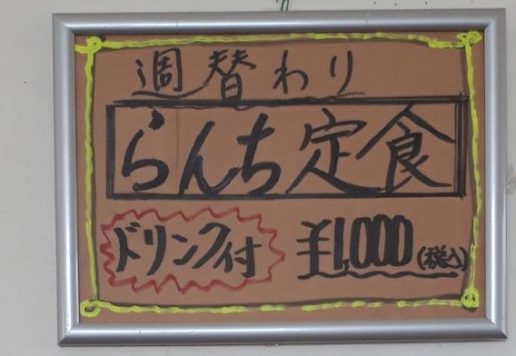 週替わり
らんち定食
ドリンク付 ¥1,000(税込)